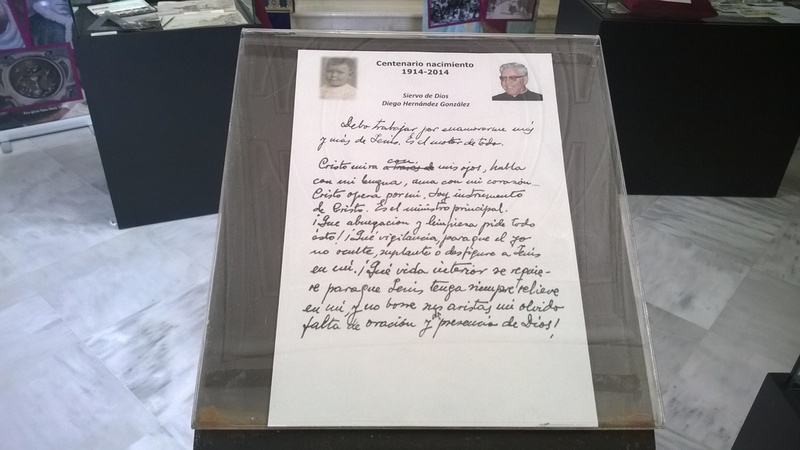 Centenario nacimiento
1914-2014
Siervo de Dios
Diego Hernández González
Debo trabajar por enamorarme más
y más de Jesús. Es el motor de todo.
Cristo mira con a través de mis ojos, habla
con mi lengua, ama con mi corazón...
Cristo opera por mí, soy instrumento
de Cristo. Es el ministro principal.
¡Qué abnegación y limpieza pide todo
ésto! ¡Qué vigilancia, para que el yo
no oculte, suplante o desfigure a Jesús
en mí. ¡Qué vida interior se requie-
re para que Jesús tenga siempre relieve
en mí y no borre sus aristas mi olvido
falta de oración y presencia de Dios!